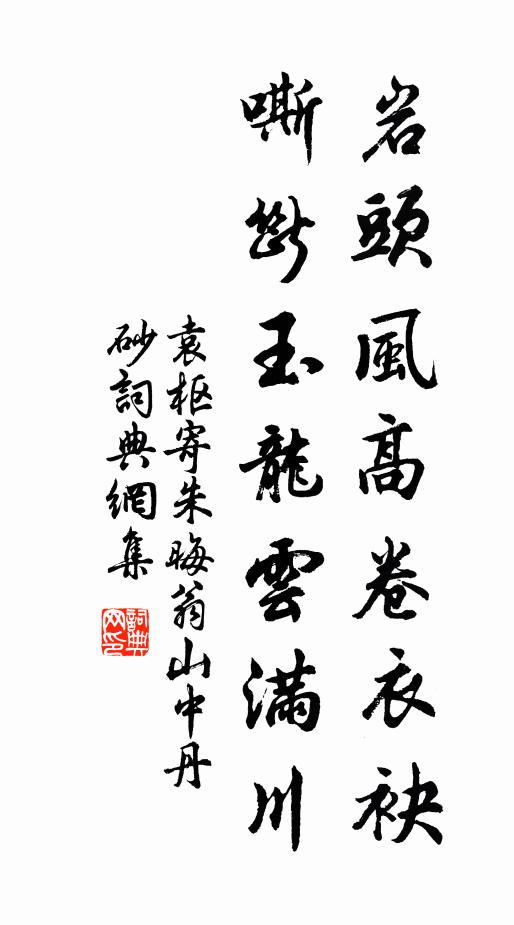 岩頭風高卷衣袂
嘶斷玉龍雲滿川
袁枢寄朱晦翁山中丹
砂詞典網集
詞典
网印